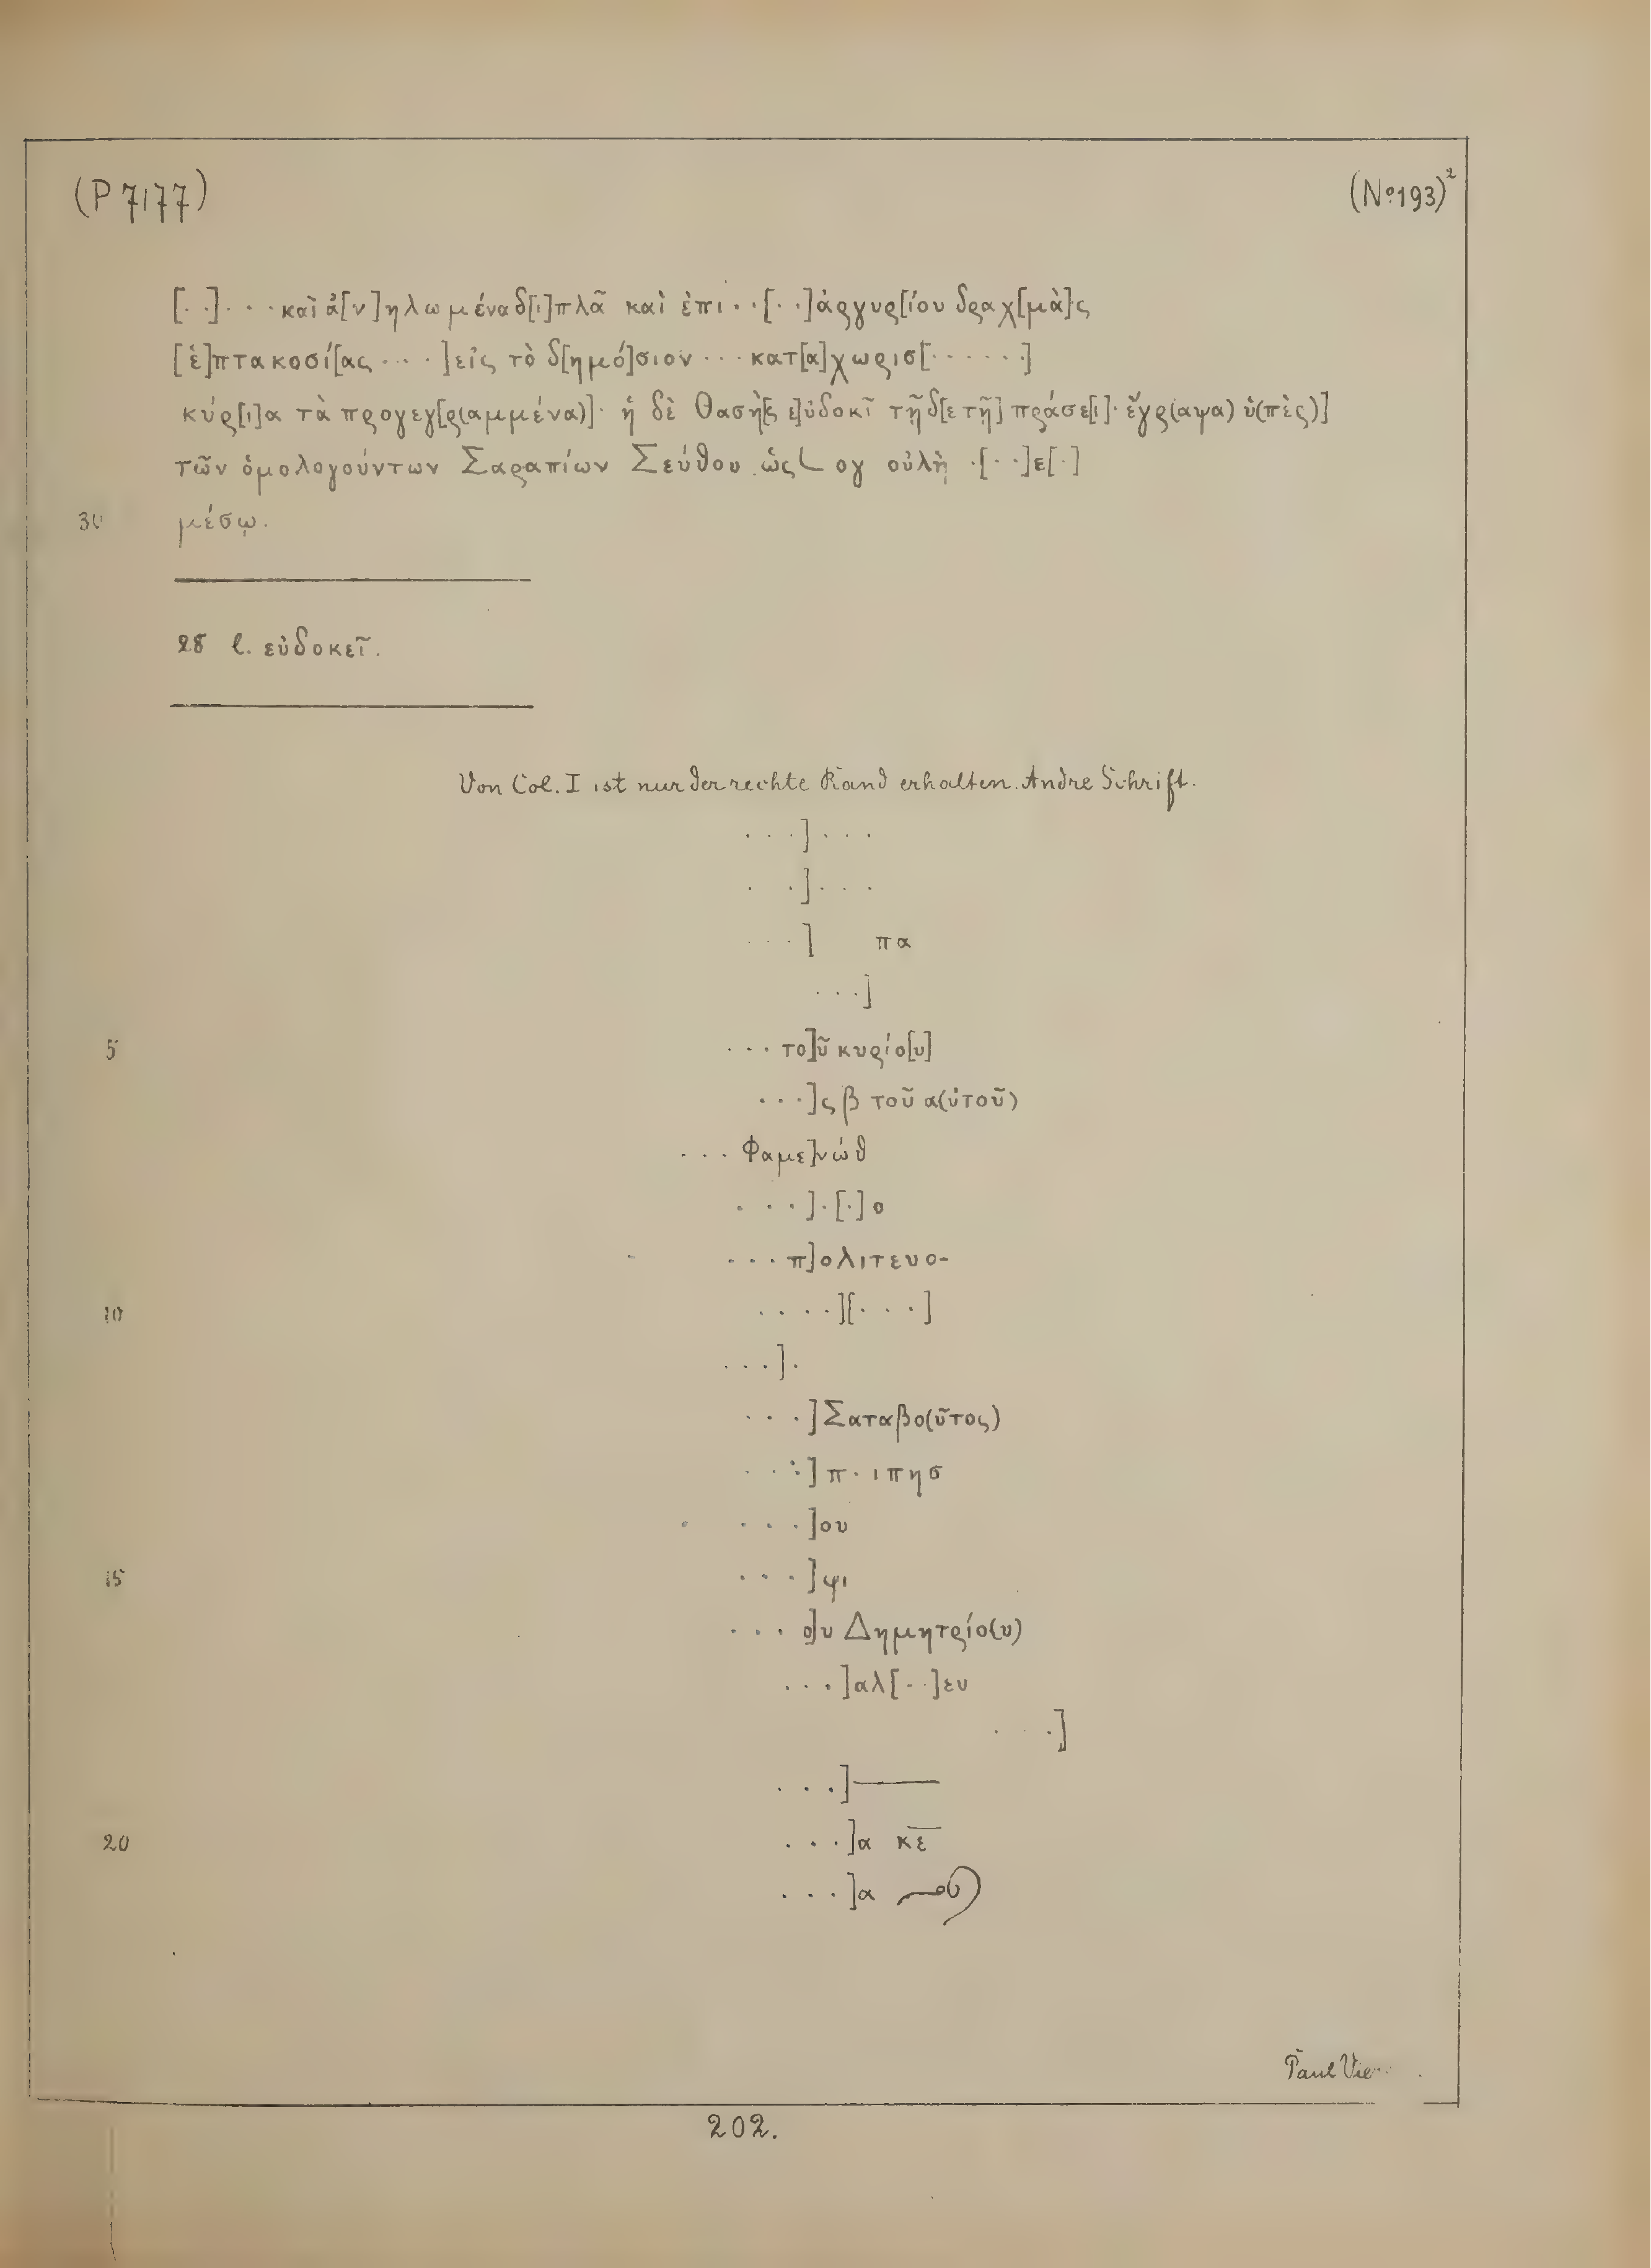 (P 7177) (No 193)²
[· ·] · · · καὶ ἀ[ν]ηλωμένα δ[ι]πλᾶ καὶ ἐπι · · [· ·] ἀργυρ[ίου δραχ[μὰ]ς
[ἑ]πτακοσί[ας · · · · ] εἰς τὸ δ[ημό]σιον · · · κατ[α]χωρισ[· · · · · ·]
κύρ[ι]α τὰ προγεγ[ρ(αμμένα)]· ἡ δὲ Θασῆ[ς ε]ὐδοκῖ τῇ δ[ε τῇ] πράσε[ι]· ἔγρ(αψα) ὑ(πὲρ)]
τῶν ὁμολογούντων Σαραπίων Σεύθου ὡς L ογ οὐλὴ ·[· ·]ε[·]
30 μέσῳ.
28 l. εὐδοκεῖ.
Von Col. I ist nur der rechte Rand erhalten. Andre Schrift.
· · ·] · · ·
· ·] · · ·
· · ·] πα
· · ·]
5 · · · το]ῦ κυρίο[υ]
· · ·]ς β τοῦ α(ὐτοῦ)
· · · Φαμε]νώθ
· · ·] · [·] ο
· · · π]ολιτευο-
10 · · · ·][· · ·]
· · ·] ·
· · ·] Σαταβο(ῦτος)
· · ·] π · ιπησ
· · ·]ου
15 · · ·]ψι
· · · ο]υ Δημητρίο(υ)
· · ·]αλ[· ·]ευ
· · ·]
· · ·]—
20 · · ·]α κε̅
· · ·]α
Paul
202.